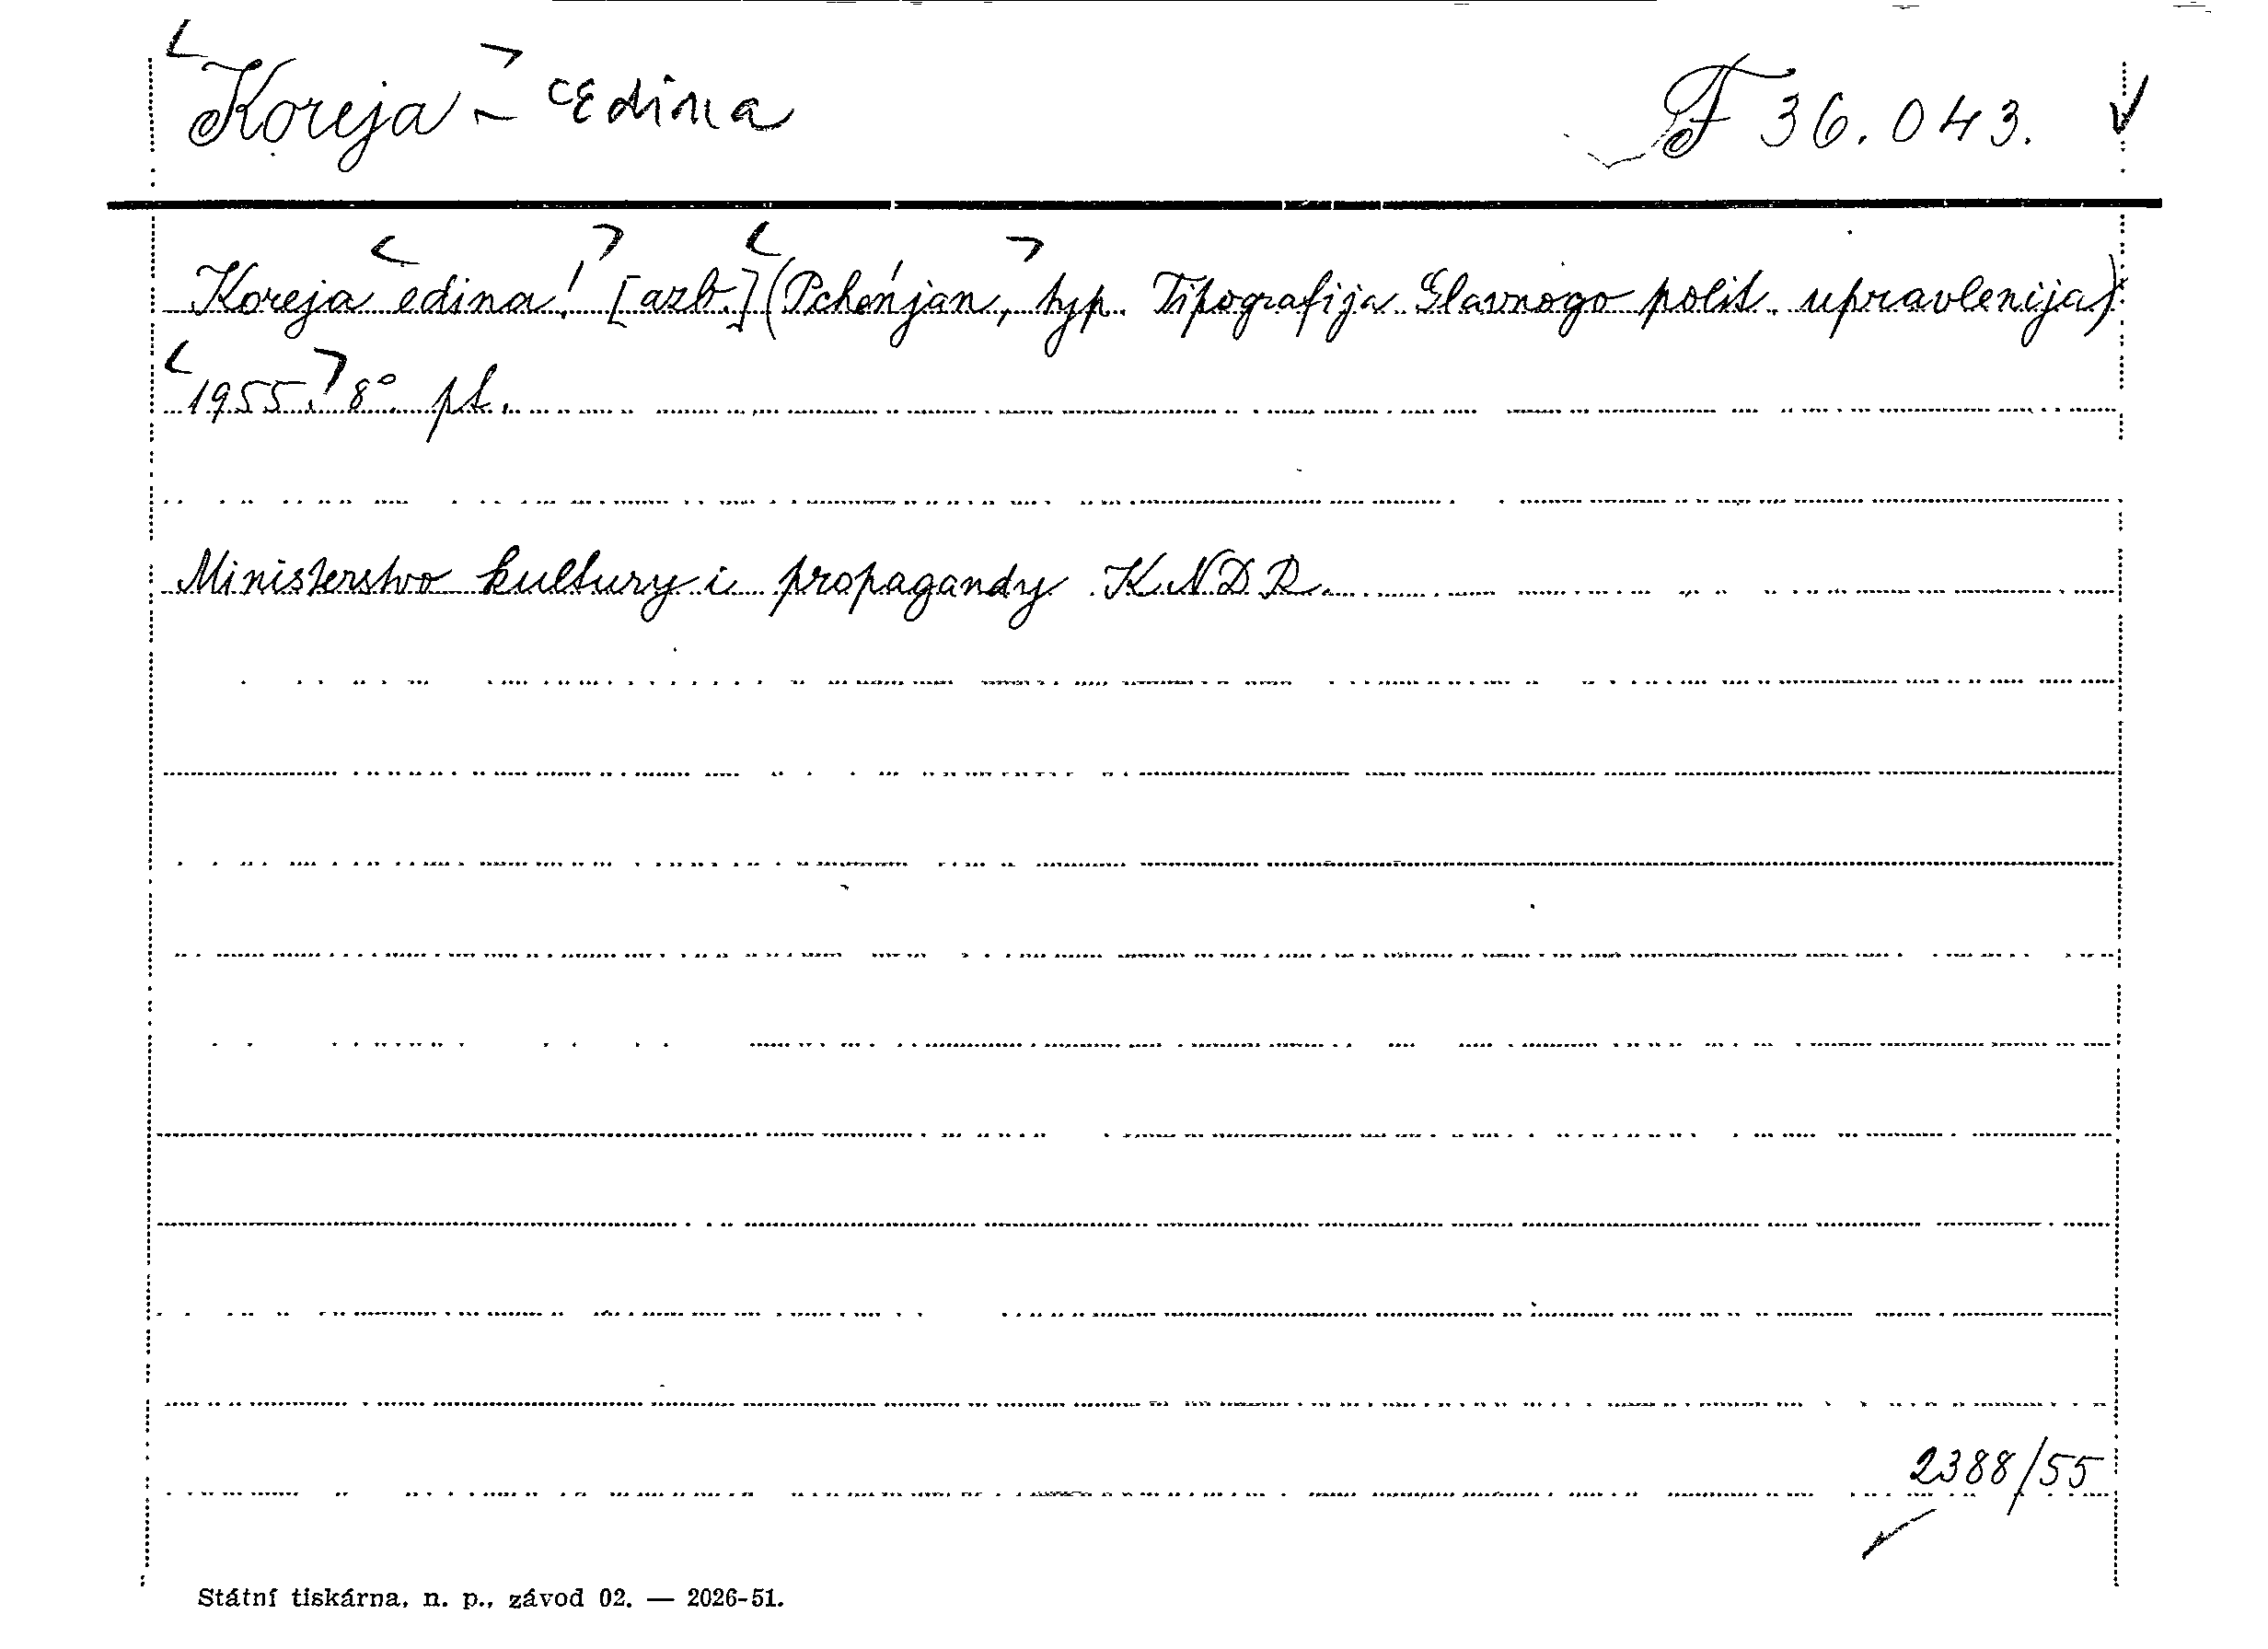 Koreja - Edina F 36.043.
Koreja edina! [azb.] (Pcheńjan, typ. Tipografija Glavnogo polit. upravlenija)
1955. 8° pt.
Ministerstvo kultury i propagandy KNDR.
2388/55
Státní tiskárna, n. p., závod 02. — 2026-51.